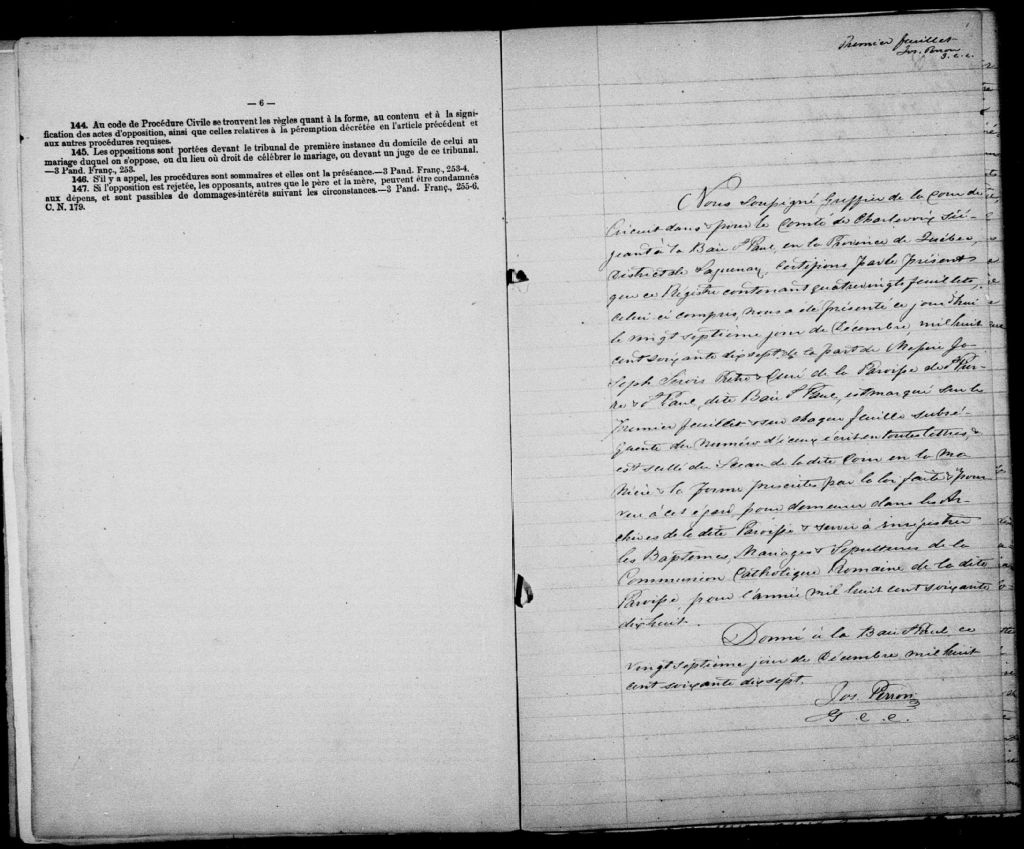 — 6 —
144. Au code de Procédure Civile se trouvent les règles quant à la forme, au contenu et à la signi-
fication des actes d'opposition, ainsi que celles relatives à la péremption décrétée en l'article précédent et
aux autres procédures requises.
145. Les oppositions sont portées devant le tribunal de première instance du domicile de celui au
mariage duquel on s'oppose, ou du lieu où droit de célébrer le mariage, ou devant un juge de ce tribunal.
—3 Pand. Franç., 253.
146. S'il y a appel, les procédures sont sommaires et elles ont la préséance.—3 Pand. Franç., 253-4.
147. Si l'opposition est rejetée, les opposants, autres que le père et la mère, peuvent être condamnés
aux dépens, et sont passibles de dommages-intérêts suivant les circonstances.—3 Pand. Franç., 255-6.
C. N. 179.
Premier feuillet
Jos. Perron
G. c. c.
Nous soussigné Greffier de la Cour de
Circuit dans & pour le Comté de Charlevoix sié-
geant à la Baie St Paul, en la Province de Québec,
District de Saguenay, Certifions par le présent
que ce Régistre contenant quatre vingt feuillets,
celui ci compris, nous a été présenté ce jourd'hui
le vingt septième jour de Décembre, mil huit
cent soixante dix sept, de la part de Messire Jo-
seph Sirois Prêtre & Curé de la Paroisse de St Pier-
re & St Paul, dite Baie St Paul, est marqué sur le
premier feuillet & sur chaque feuille subsé-
quente du numéro d'iceux écrit en toutes lettres, &
est scellé du Sceau de la dite Cour en la ma-
nière & la forme prescrites par la loi faite & pour-
vue à cet égard, pour demeurer dans les Ar-
chives de la dite Paroisse & servir à enregistrer
les Baptêmes, Mariages & Sépultures de la
Communion Catholique Romaine de la dite
Paroisse, pour l'année mil huit cent soixante
dix huit.
Donné à la Baie St Paul ce
vingt septième jour de Décembre mil huit
cent soixante dix sept.
Jos. Perron
G. c. c.